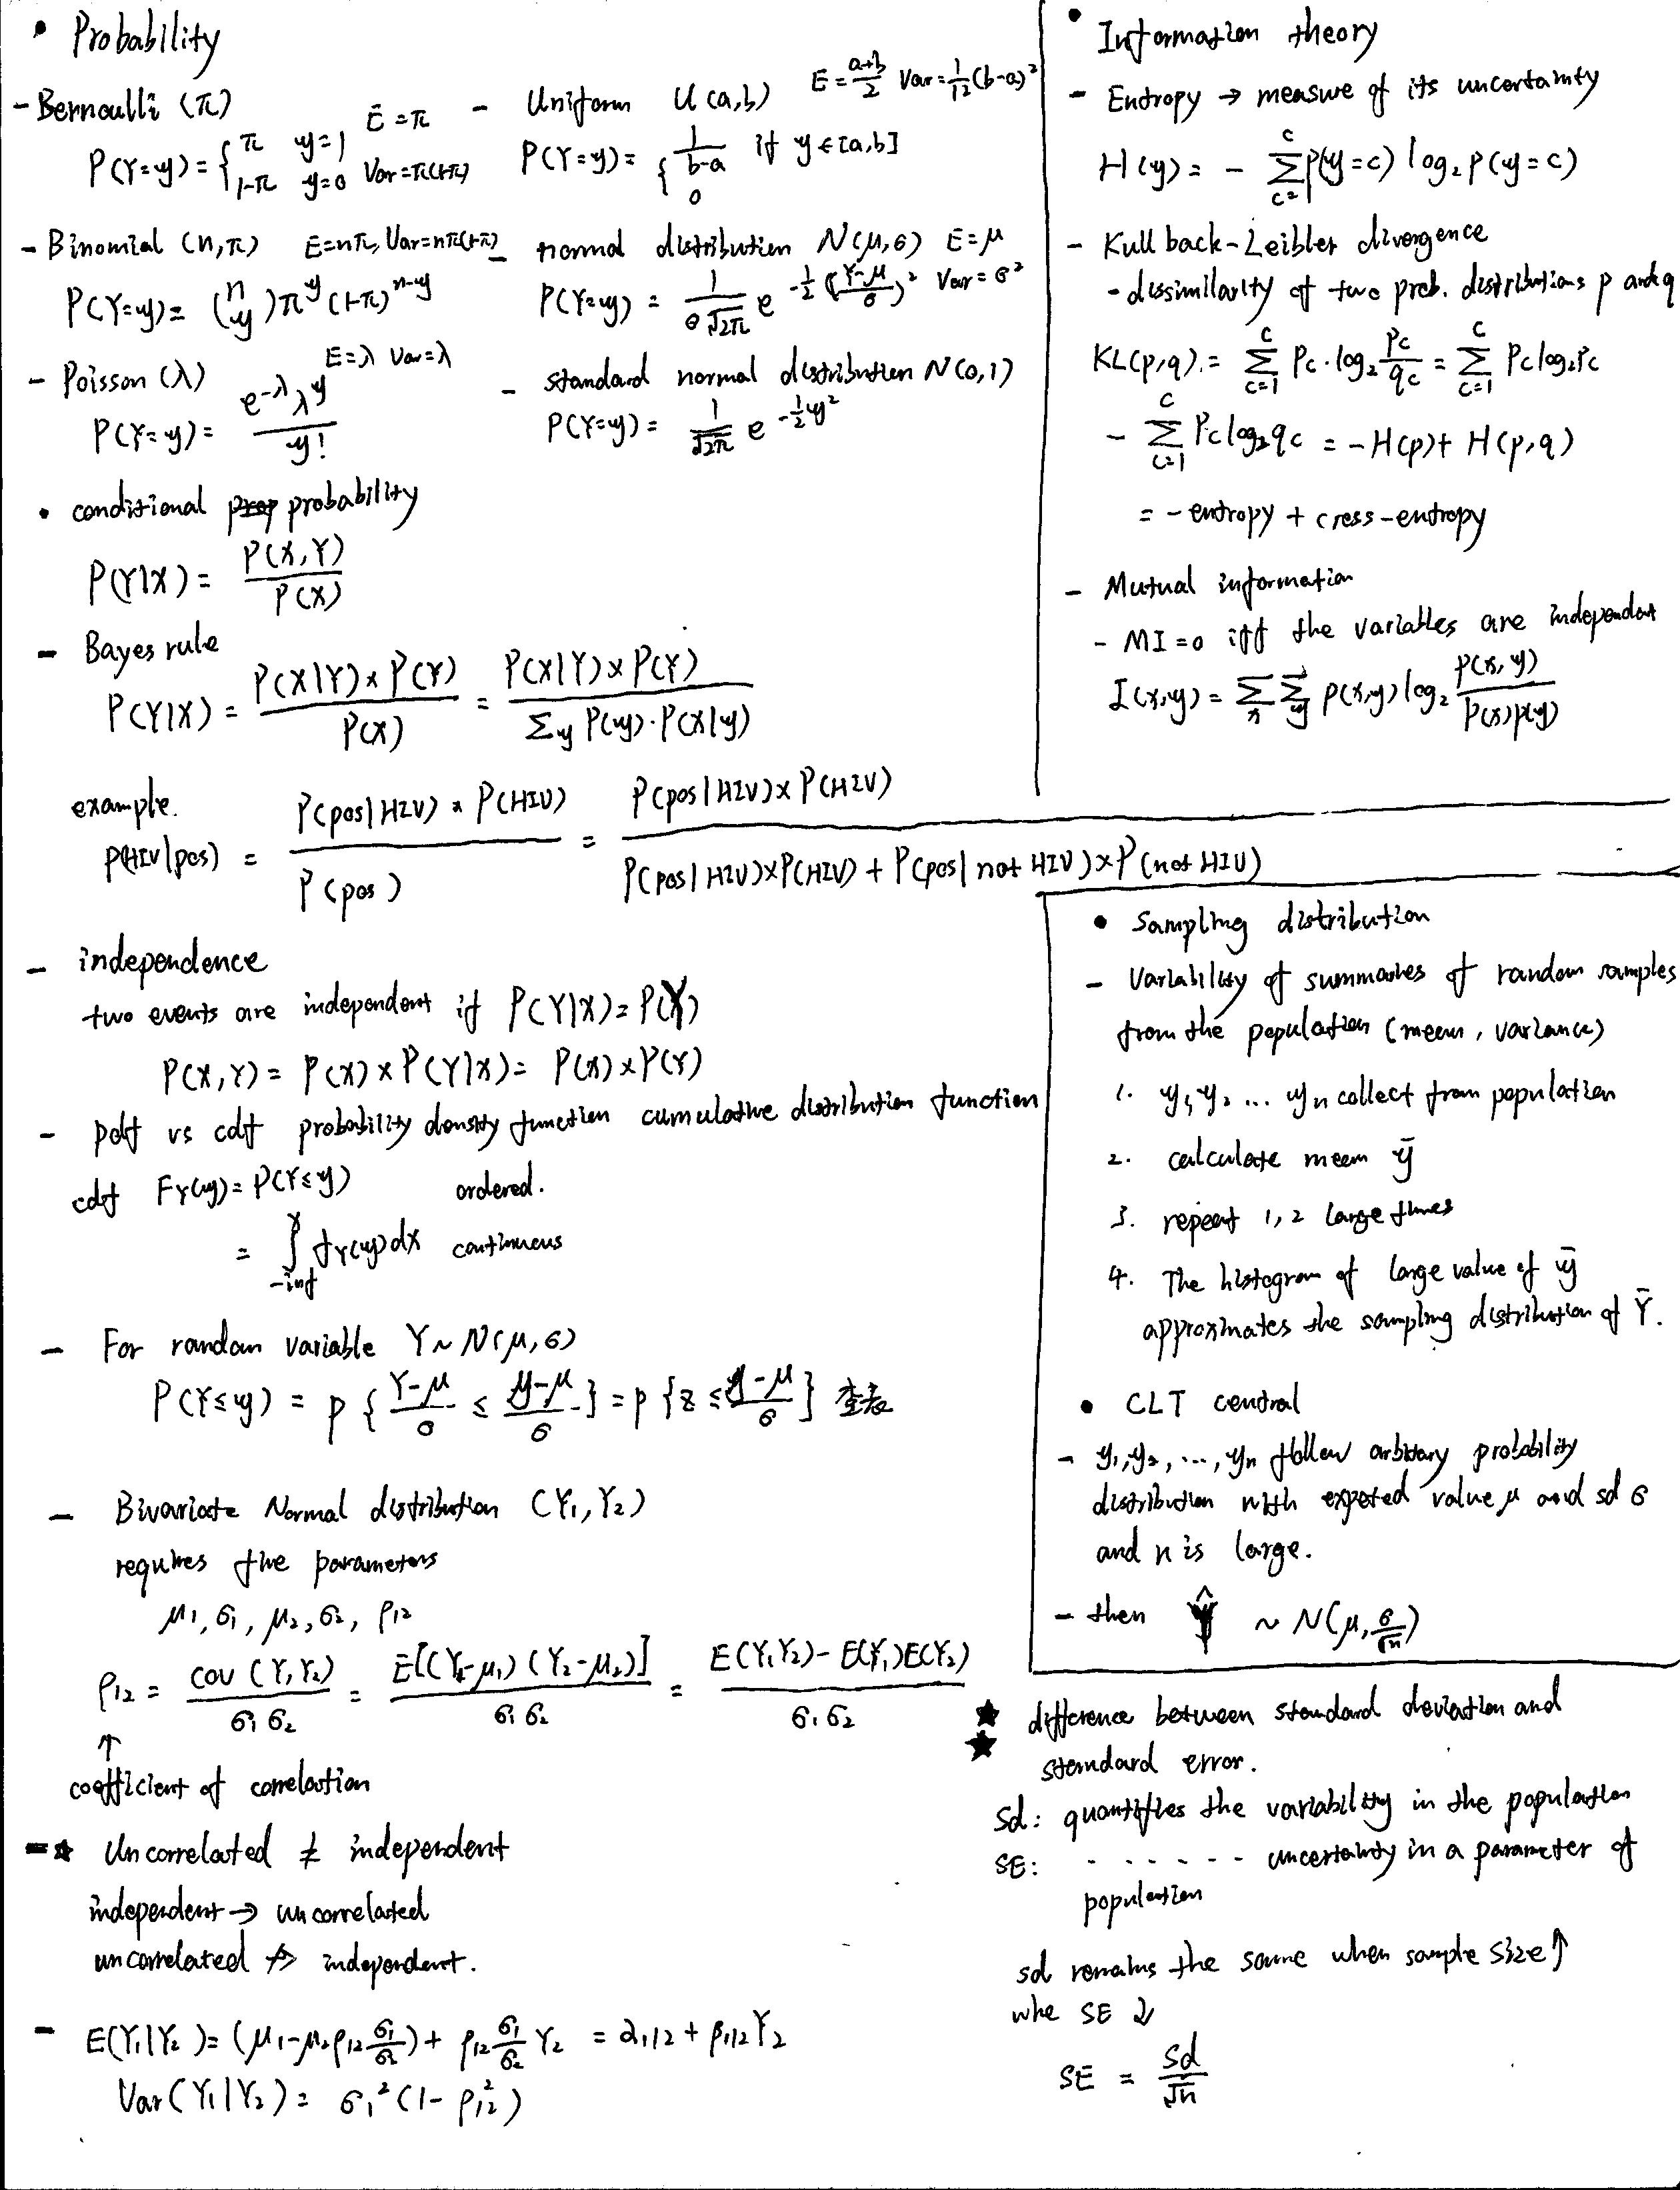 • Probability
- Bernoulli (π) E = π
P(Y=y) = { π y=1
1-π y=0 Var = π(1-π)
- Binomial (n, π) E=nπ, Var=nπ(1-π)
P(Y=y) = (n y) π^y (1-π)^n-y
- Poisson (λ) E=λ Var=λ
P(Y=y) = e^-λ λ^y / y!
- Uniform U(a,b) E = a+b/2 Var = 1/12 (b-a)²
P(Y=y) = { 1/b-a if y ∈ [a,b]
0
- normal distribution N(μ,σ) E = μ
P(Y=y) = 1/σ√2π e^-1/2 (Y-μ/σ)² Var = σ²
- standard normal distribution N(0,1)
P(Y=y) = 1/√2π e^-1/2 y²
• conditional prop probability
P(Y|X) = P(X,Y) / P(X)
- Bayes rule
P(Y|X) = P(X|Y) × P(Y) / P(X) = P(X|Y) × P(Y) / Σy P(y)·P(X|y)
example.
P(HIV|pos) = P(pos|HIV) × P(HIV) / P(pos) = P(pos|HIV) × P(HIV) / P(pos|HIV)×P(HIV) + P(pos|not HIV)×P(not HIV)
- independence
two events are independent if P(Y|X) = P(Y)
P(X,Y) = P(X) × P(Y|X) = P(X) × P(Y)
- pdf vs cdf probability density function cumulative distribution function
cdf F_Y(y) = P(Y≤y) ordered.
= ∫ -inf x f_Y(y)dx continuous
- For random variable Y ~ N(μ, σ)
P(Y≤y) = p { Y-μ/σ ≤ y-μ/σ } = p { z ≤ y-μ/σ } 查表
- Bivariate Normal distribution (Y₁, Y₂)
requires the parameters
μ₁, σ₁, μ₂, σ₂, ρ₁₂
ρ₁₂ = cov (Y₁Y₂) / σ₁σ₂ = E[(Y₁-μ₁)(Y₂-μ₂)] / σ₁σ₂ = E(Y₁Y₂) - E(Y₁)E(Y₂) / σ₁σ₂
↑
coefficient of correlation
-☆ Uncorrelated ≠ independent
independent → uncorrelated
uncorrelated ↛ independent.
- E(Y₁|Y₂) = (μ₁-μ₂ρ₁₂ σ₁/σ₂) + ρ₁₂ σ₁/σ₂ Y₂ = α₁|₂ + β₁|₂Y₂
Var(Y₁|Y₂) = σ₁² (1-ρ₁₂²)
• Information theory
- Entropy → measure of its uncertainty
H(y) = - Σ c=1 C P(y=c) log₂ P(y=c)
- Kullback-Leibler divergence
- dissimilarity of two prob. distributions p and q
KL(p,q) = Σ c=1 C Pc · log₂ Pc/qc = Σ c=1 C Pc log₂Pc
- Σ c=1 C Pc log₂ qc = -H(p) + H(p,q)
= - entropy + cross-entropy
- Mutual information
- MI = 0 iff the variables are independent
I(x,y) = Σx Σy P(x,y) log₂ P(x,y) / P(x)P(y)
• Sampling distribution
- Variability of summaries of random samples
from the population (mean, variance)
1. y₁, y₂ ... yn collect from population
2. calculate mean ȳ
3. repeat 1, 2 large times
4. The histogram of large value of ȳ
approximates the sampling distribution of Ȳ.
• CLT central
- y₁, y₂, ..., yn follow arbitary probability
distribution with expected value μ and sd σ
and n is large.
- then Ŷ ~ N(μ, σ/√n)
★ difference between standard deviation and
★ standard error.
Sd: quantifies the variability in the population
SE: - - - - - - uncertainty in a parameter of
population
sd remains the same when sample size ↑
whe SE ↓
SE = Sd / √n